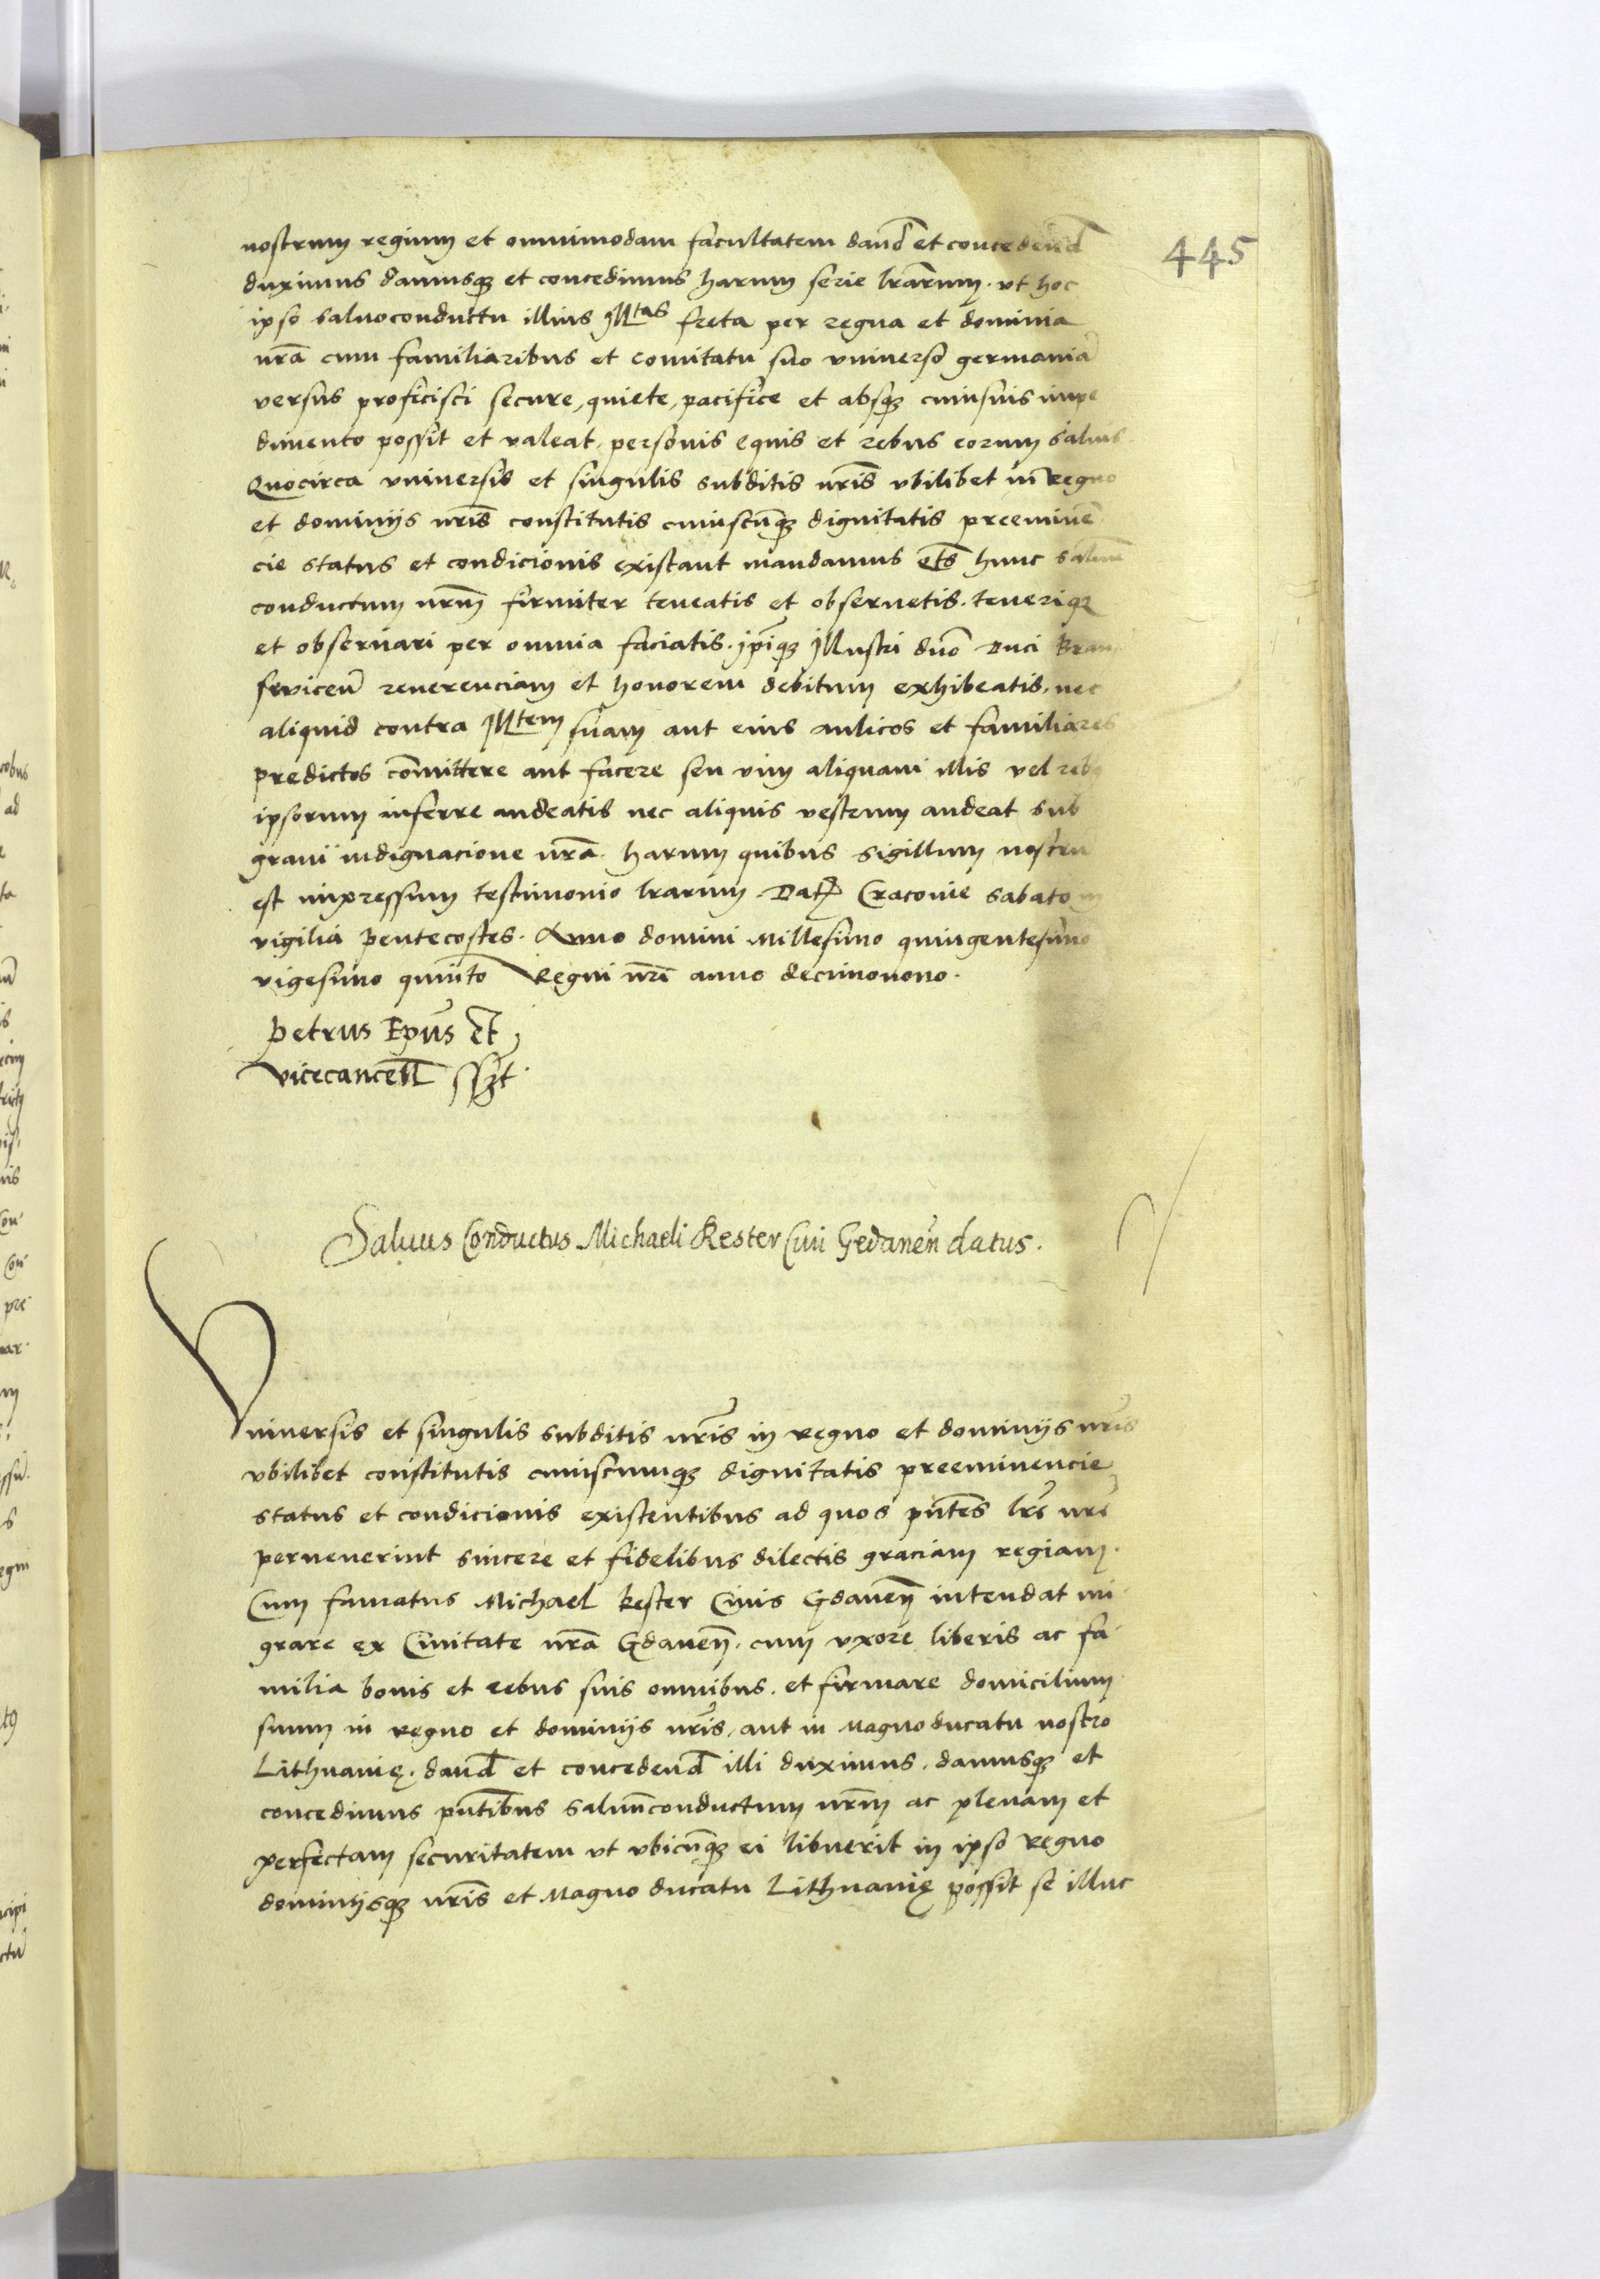 445
nostrum regium et omnimodam facultatem dand et concedend
duximus damusq et concedimus harum serie lrarum. vt hoc
ipso saluoconductu illius Illtas freta per regna et dominia
nra cum familiaribus et comitatu suo vniuerso germania
versus proficisci secure, quiete, pacifice et absq cuiusuis impe
dimento possit et valeat, personis equis et rebus eorum saluis.
Quocirca vniuersis et singulis subditis nris vbilibet in Regno
et dominijs nris constitutis cuiuscunq dignitatis preeminen
cie status et condicionis existant mandamus ets hunc saluu
conductum nrm firmiter teneatis et obseruetis. teneriq
et obseruari per omnia faciatis. ipiq Illustri dno Duci
 reuerenciam et honorem debitum exhibeatis, nec
aliquid contra Illtem suam aut eius aulicos et familiares
predictos comittere aut facere seu vim aliquam illis vel rebq
ipsorum inferre audeatis nec aliquis vestrum audeat sub
graui indignacione nra. harum quibus sigillum nostru
est impressum testimonio lrarum. Dat Cracouie sabato in
vigilia Pentecostes. Anno domini Millesimo quingentesimo
vigesimo quinto Regni nri anno decimonono.
Petrus Epus et
vicecancell sszt.
Saluus Conductus Michaeli Kester Ciui Gedanen datus.
Vniuersis et singulis subditis nris in regno et dominijs nris
vbilibet constitutis cuiuscumq dignitatis preeminencie
status et condicionis existentibus ad quos pntes lre nre
peruenerint sincere et fidelibus dilectis graciam regiam.
Cum famatus Michael kester Ciuis Gdanen intendat mi
grare ex Ciuitate nra Gdanen. cum vxore liberis ac fa
milia bonis et rebus suis omnibus. et firmare domicilium
suum in regno et dominijs nris, aut in Magno ducatu nostro
Lithuanię. dand et concedend illi duximus. damusq et
concedimus pntibus saluuconductum nrm ac plenam et
perfectam securitatem vt vbicunq ei libuerit in ipso regno
dominijsq nris et Magno ducatu Lithuanię possit se illuc